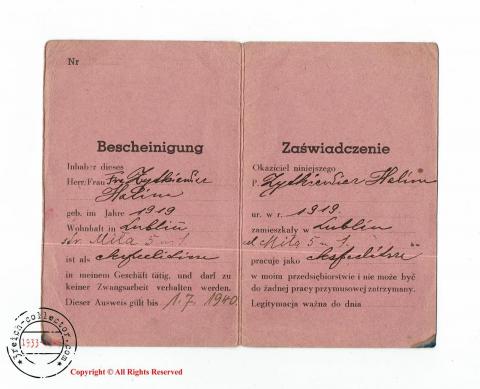 Nr
Bescheinigung
Inhaber dieses
Herr/Frau Frl Zytkiewicz
Halina
geb. im Jahre 1919
Wohnhaft in Lublin
str. Miła 5 m 1.
ist als
in meinem Geschäft tätig, und darf zu
keiner Zwangsarbeit verhalten werden.
Dieser Ausweis gilt bis 1.7. 1940
Zaświadczenie
Okaziciel niniejszego
P. Zytkiewicz Halina
ur. w r. 1919.
zamieszkały w Lublin
Miła 5 m 1.
pracuje jako
w moim przedsiębiorstwie i nie może być
do żadnej pracy przymusowej zatrzymany.
Legitymacja ważna do dnia
reich-collector.com
1933
Copyright © All Rights Reserved